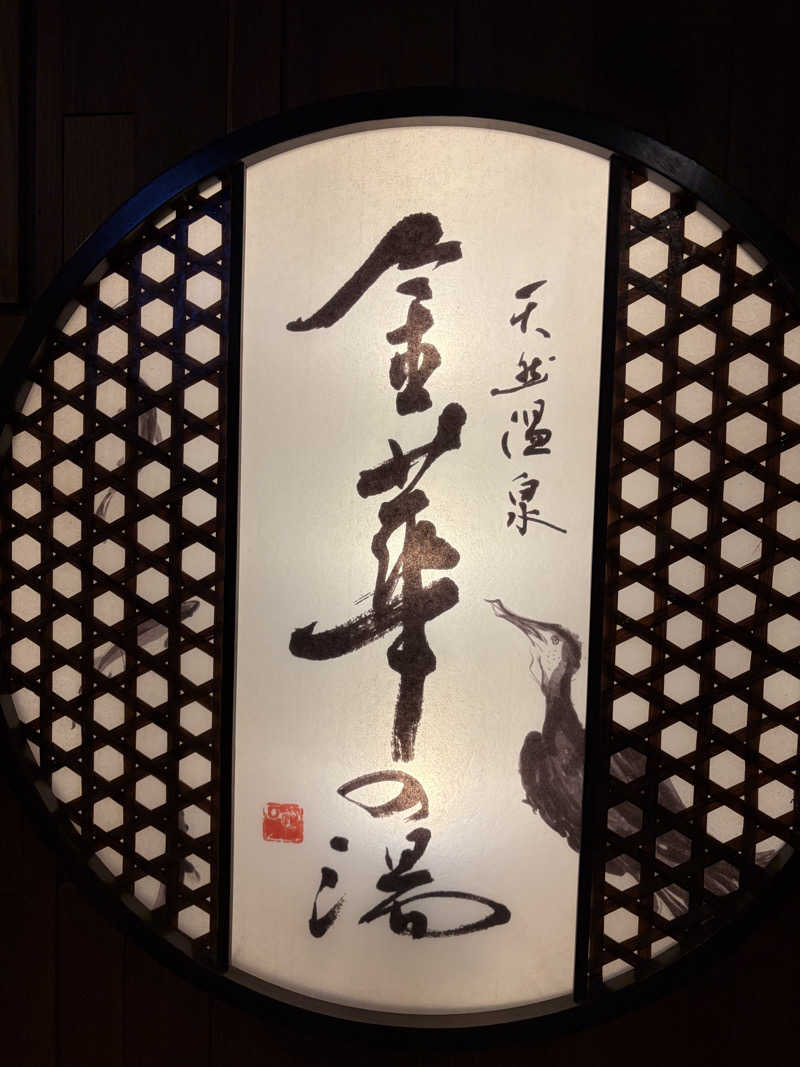 天然温泉
金華の湯